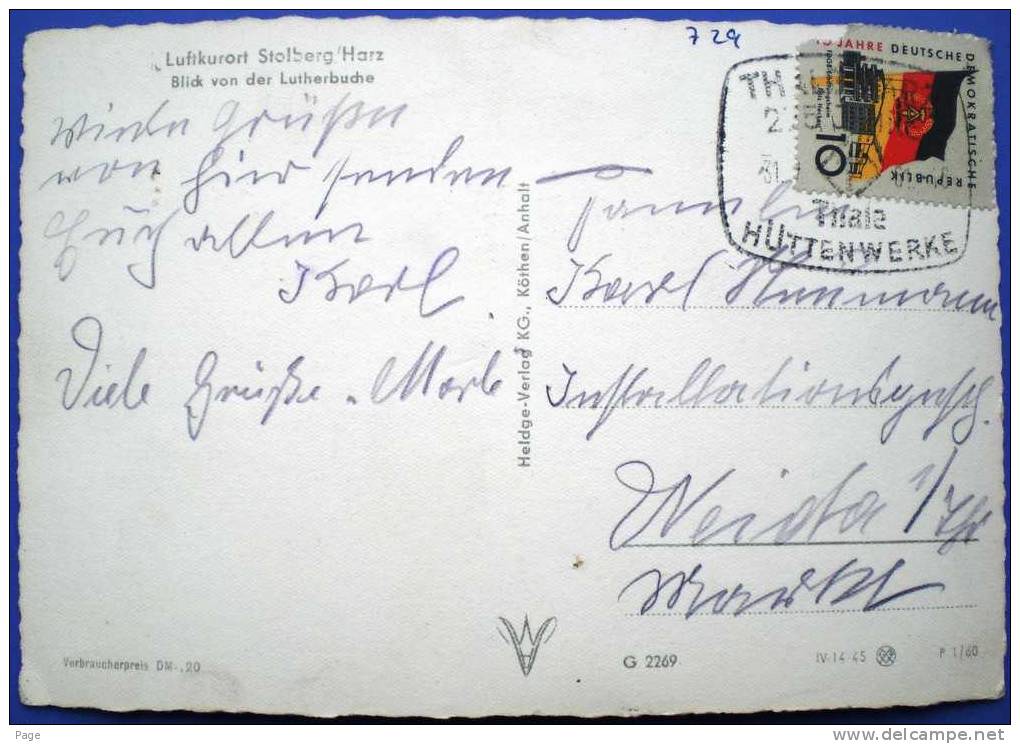 Luftkurort Stolberg/Harz
Blick von der Lutherbuche
Viele Grüße
von hier senden
Euch allen
Karl
Viele Grüße. Marle
Heldge-Verlag KG., Köthen/Anhalt
729
15 JAHRE DEUTSCHE DEMOKRATISCHE REPUBLIK
10
TH
31.
Thale
HÜTTENWERKE
Familie
Karl
Installationsgesch.
Weida i/Th
Markt
Verbraucherpreis DM -,20
G 2269
IV-14-45
P 1/60
Page
www.delcampe.net